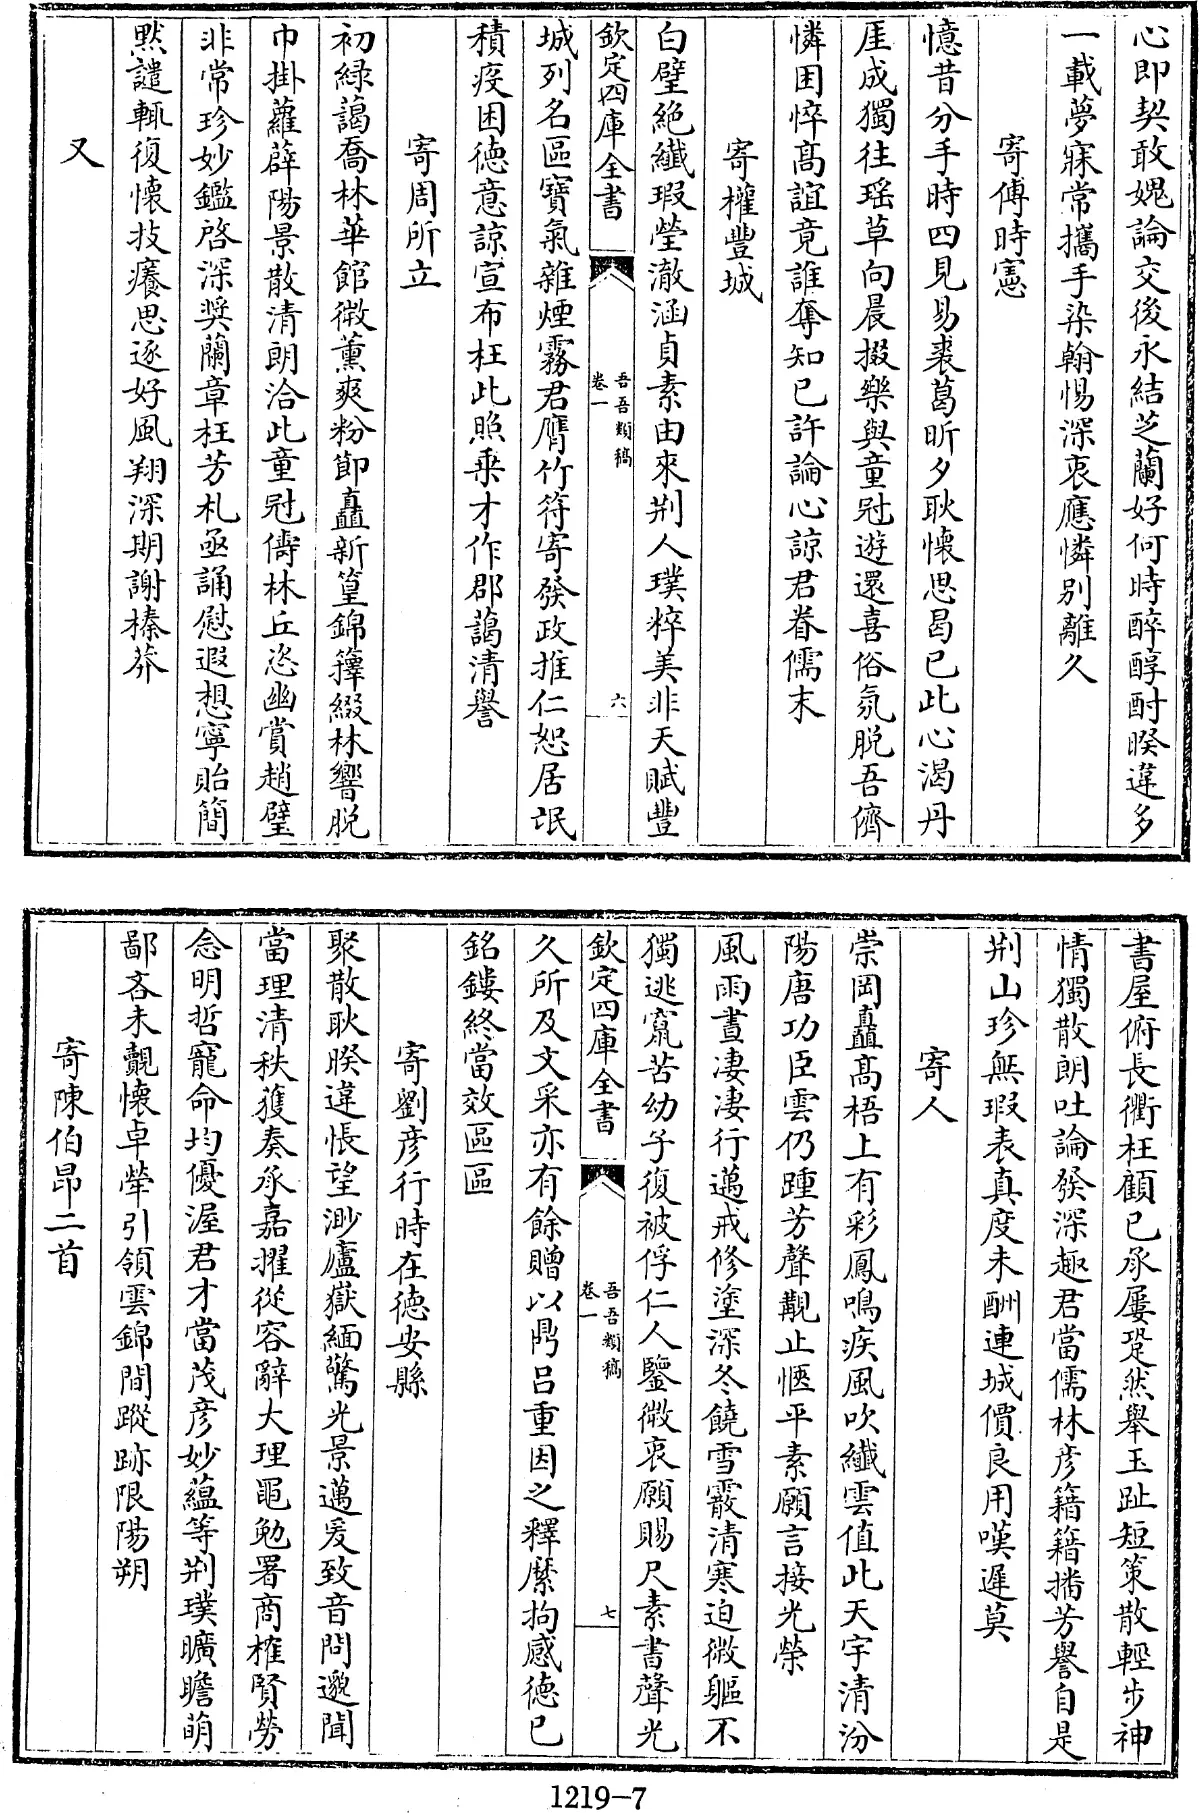 心即契敢媿論交後永結芝蘭好何時醉醇酎睽違多
一載夢寐常攜手染翰惕深衷應憐别離久
寄傅時憲
憶昔分手時四見易裘葛昕夕耿懐思曷已此心渴丹
厓成獨往瑶草向晨掇樂與童冠遊還喜俗氛脱吾儕
憐困悴髙誼竟誰奪知已許論心諒君眷儒末
寄權豐城
白璧絶纎瑕瑩澈涵貞素由來荆人璞粹美非天賦豐
欽定四庫全書
吾吾類稿
卷一
六
城列名區寳氣雜煙霧君膺竹符寄發政推仁恕居氓
積疫困徳意諒宣布枉此照乗才作郡藹清譽
寄周所立
初緑藹喬林華館微薫爽粉節矗新篁錦籜綴林響脱
巾掛蘿薜陽景散清朗洽此童冠儔林丘恣幽賞趙璧
非常珍妙鑑啓深奬蘭章枉芳札亟誦慰遐想寧貽簡
黙譴輒復懐技癢思逐好風翔深期謝榛莽
又
書屋俯長衢枉顧已承屢跫然舉玉趾短策散輕步神
情獨散朗吐論發深趣君當儒林彦籍籍播芳譽自是
荆山珍無瑕表真度未酬連城價良用嘆遲莫
寄人
崇岡矗髙梧上有彩鳳鳴疾風吹纎雲值此天宇清汾
陽唐功臣雲仍踵芳聲覯止愜平素願言接光榮
風雨晝凄凄行邁戒修塗深冬饒雪霰清寒迫微軀不
獨逃竄苦幼子復被俘仁人鑒微衷願賜尺素書聲光
欽定四庫全書
吾吾類稿
卷一
七
久所及文采亦有餘贈以鼎吕重因之釋縻拘感徳已
銘鏤終當效區區
寄劉彦行時在徳安縣
聚散耿睽違悵望渺廬嶽緬驚光景邁爰致音問邈聞
當理清秩獲奏承嘉擢從容辭大理黽勉署商榷賢勞
念明哲寵命均優渥君才當茂彦妙藴等荆璞曠瞻萌
鄙吝未覿懐卓犖引領雲錦間蹤跡限陽朔
寄陳伯昂二首
1219-7